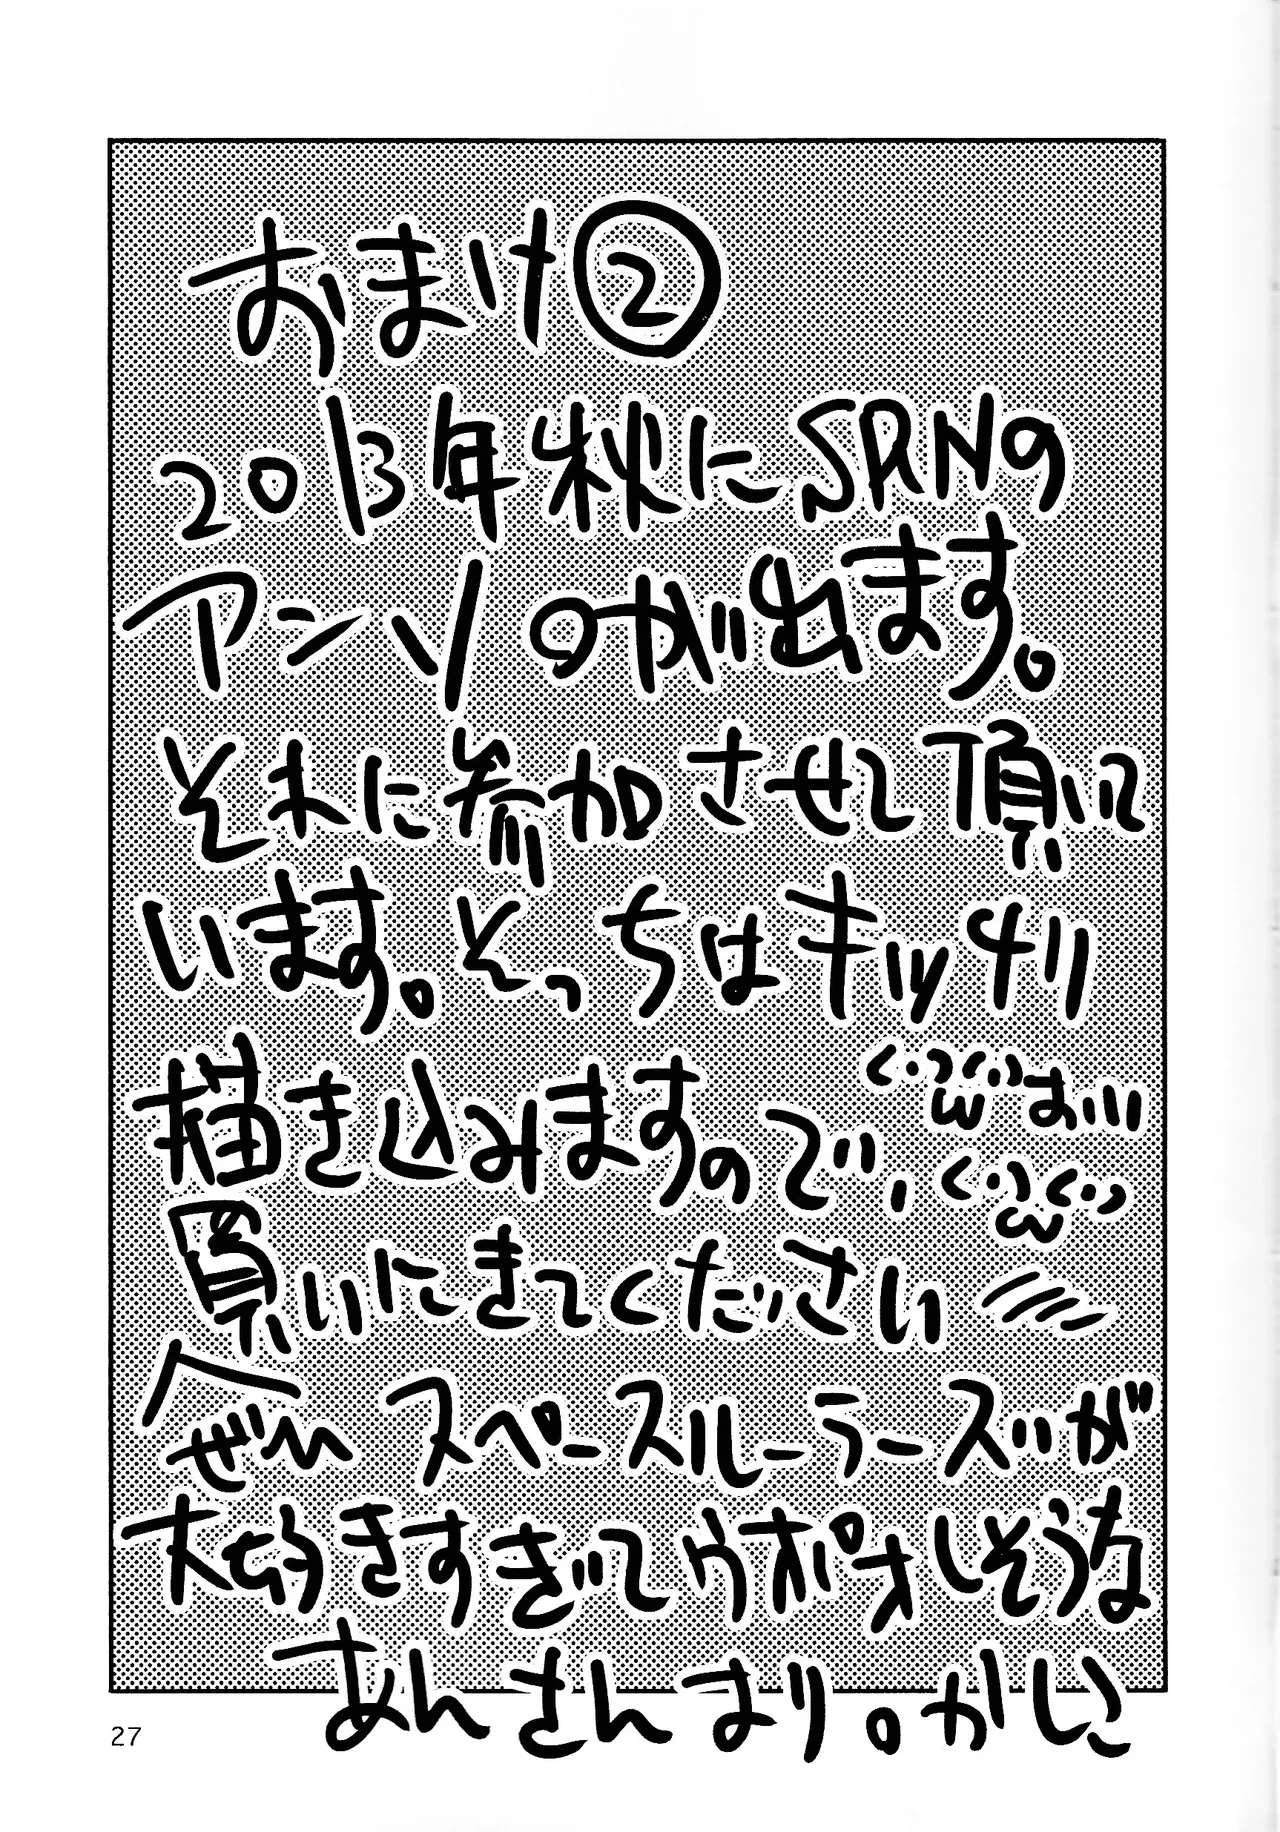 おまけ②
2013年秋にSRNの
アンソのが出ます。
それに参加させて頂いて
います。そっちはキッチリ
描き込みますので、
買いにきてくだささい
ぜひ スペースルーラーズが
大好きすぎてウポオしそうな
あんさんより。かしこ
27